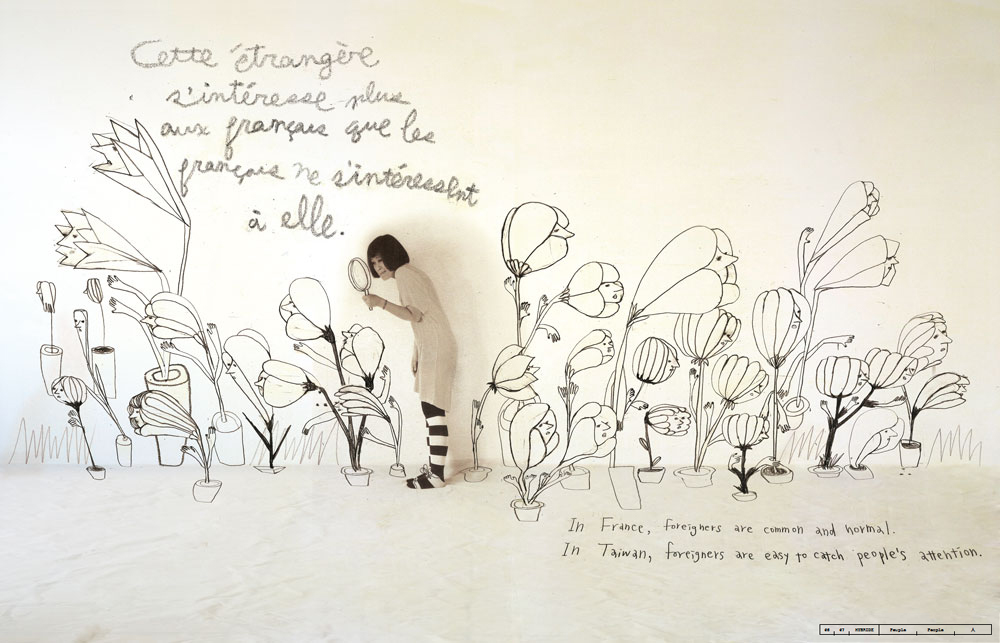 Cette étrangère
s'intéresse plus
aux français que les
français ne s'intéressent
à elle.
In France, foreigners are common and normal.
In Taiwan, foreigners are easy to catch people's attention.
People People A